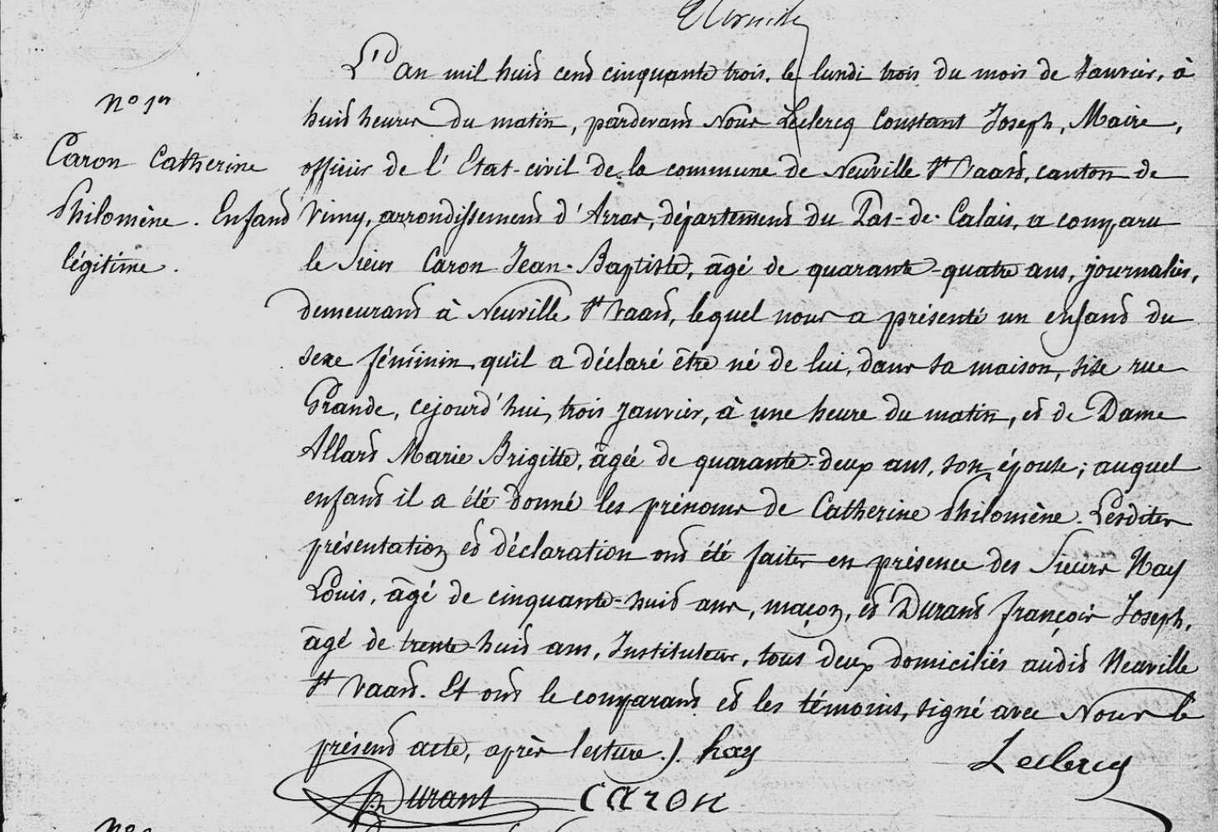 L'an mil huit cent cinquante trois, le lundi trois du mois de Janvier, à
huit heures du matin, pardevant Nous Leclercq Constant Joseph, Maire,
officier de l'Etat-civil de la commune de Neuville St Vaast, canton de
Vimy, arrondissement d'Arras, département du Pas-de-Calais, a comparu
le Sieur Caron Jean-Baptiste, âgé de quarante-quatre ans, journalier,
demeurant à Neuville St Vaast, lequel nous a présenté un enfant du
sexe féminin qu'il a déclaré être né de lui, dans sa maison, sise rue
Grande, cejourd'hui, trois janvier, à une heure du matin, et de Dame
Allart Marie Brigitte, âgée de quarante-deux ans, son épouse; auquel
enfant il a été donné les prénoms de Catherine Philomène. Lesdites
présentation et déclaration ont été faites en présence des Sieurs Hay
Louis, âgé de cinquante-huit ans, maçon, et Durant françois Joseph,
âgé de trente-huit ans, Instituteur, tous deux domiciliés audit Neuville
St Vaast. Et ont le comparant et les témoins, signé avec Nous le
présent acte, après lecture./. hay
Leclercq
Durant
CARON
No 1er
Caron Catherine
Philomène. Enfant
légitime.